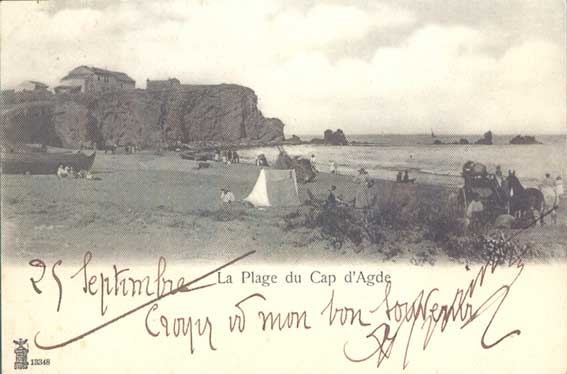 La Plage du Cap d'Agde
25 Septembre
Croyez à mon bon Souvenir
13348